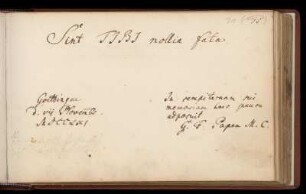 Sint TIBI mollia fata.
Gottingae
d. VII Novembr.
In sempiternam sui
memoriam haec pauca
adposuit
G. F. Papen M. C.